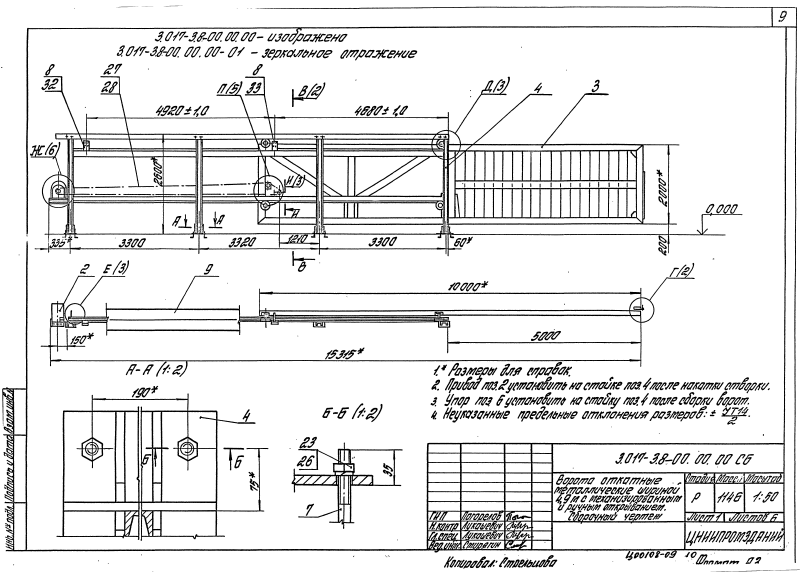 9
3.017-3.8-00.00.00 - изображено
3.017-3.8-00.00.00-01 - зеркальное отражение
8
32
27
28
П(5)
8
33
В(2)
Д(3)
4
3
4920±1,0
4680±1,0
Ж(6)
2600*
И(3)
А
А
А
2000*
0,000
200
335*
3300
3320
1210
3300
60*
В
2
Е(3)
9
10000*
Г(2)
150*
5000
15315*
1.* Размеры для справок.
2. Привод поз.2 установить на стойке поз.4 после накатки створки.
3. Упор поз 6 установить на стойку поз.4 после сборки ворот.
4. Неуказанные предельные отклонения размеров: ± УТ14/2.
А-А (1:2)
190*
4
Б
Б
75*
Б-Б (1:2)
23
26
35
7
3.017-3.8-00.00.00 СБ
Ворота откатные
металлические шириной
4,9 м с механизированным
и ручным открыванием.
Сборочный чертеж
Стадия Масса Масштаб
Р 1146 1:50
Лист 1 Листов 6
ЦНИИПРОМЗДАНИЙ
ГИП Погорелов
Н.контр Лукашевич
Гл.спец Лукашевич
Вед.инж. Стирягин
Инв.№ подл. Подпись и дата Взам.инв.№
Копировал: Стрельцова
Ц00108-09 10
Формат А2